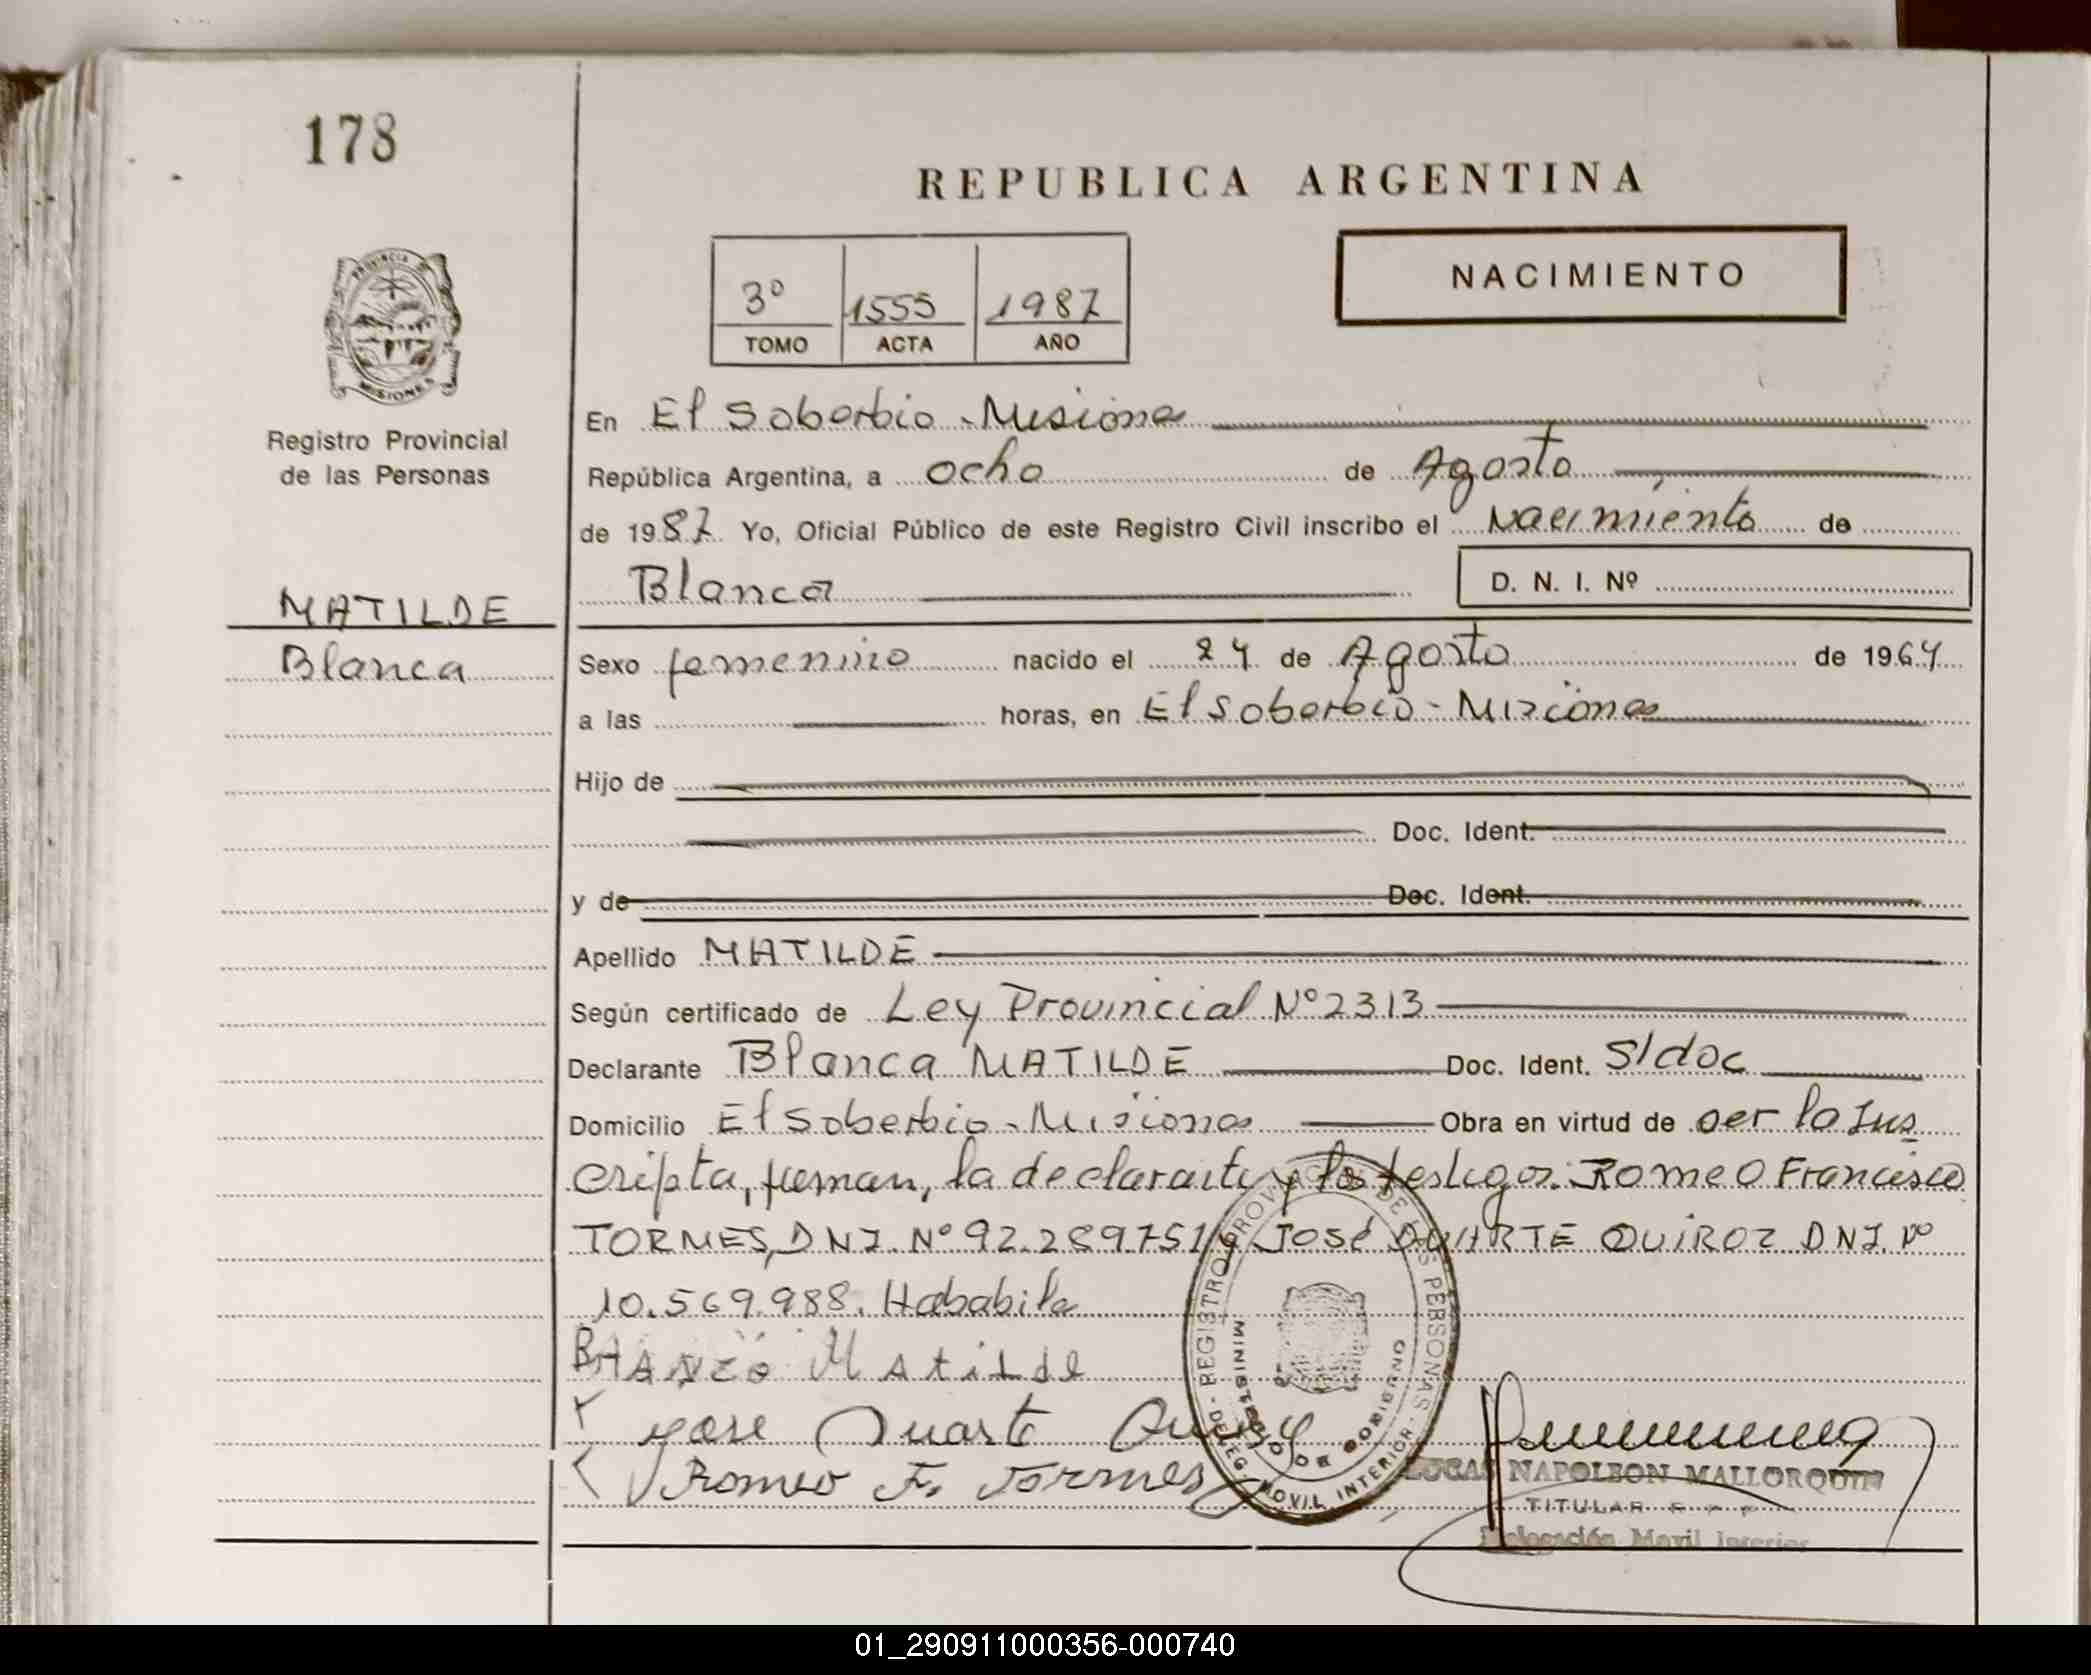 178
REPUBLICA ARGENTINA
3º 1555 1987
TOMO ACTA AÑO
NACIMIENTO
PROVINCIA DE MISIONES
Registro Provincial
de las Personas
En El Soberbio - Misiones
República Argentina, a ocho de Agosto
de 1987. Yo, Oficial Público de este Registro Civil inscribo el Nacimiento de
Blanca D. N. I. Nº
MATILDE
Blanca
Sexo femenino nacido el 24 de Agosto de 1964
a las horas, en El Soberbio - Misiones
Hijo de
Doc. Ident.
y de Doc. Ident.
Apellido MATILDE
Según certificado de Ley Provincial Nº 2313
Declarante Blanca MATILDE Doc. Ident. S/doc
Domicilio El Soberbio - Misiones Obra en virtud de ser la Ins
cripta, firman, la declarante y los testigos: Romeo Francisco
TORMES, DNI. Nº 92.289751 y José DUARTE QUIROZ DNI. Nº
10.569.988. Hababita
Matilde
Jose Duarte
Romeo F. Tormes
REGISTRO PROVINCIAL DE LAS PERSONAS - DELEG. MOVIL INTERIOR -
MINISTERIO DE GOBIERNO
LUCAS NAPOLEON MALLORQUIN
TITULAR
Delegación Movil Interior
01_290911000356-000740